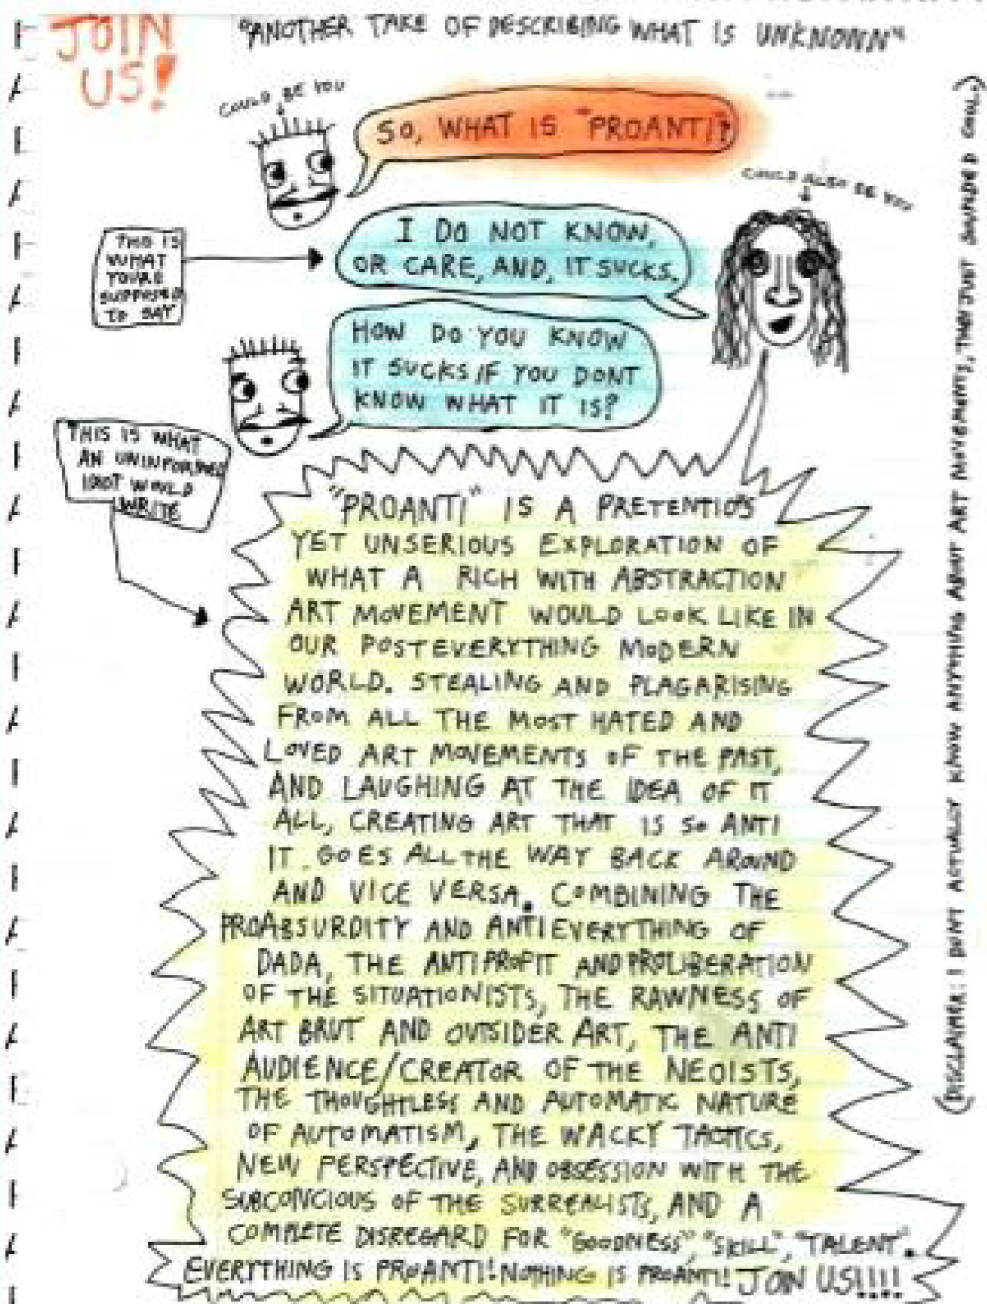 JOIN
US!
"ANOTHER TAKE OF DESCRIBING WHAT IS UNKNOWN"
COULD BE YOU
SO, WHAT IS "PROANTI"?
COULD ALSO BE YOU
THIS IS
WHAT
YOURE
SUPPOSED
TO SAY
I DO NOT KNOW,
OR CARE, AND, IT SUCKS.
HOW DO YOU KNOW
IT SUCKS IF YOU DONT
KNOW WHAT IT IS?
THIS IS WHAT
AN UNINFORMED
IDIOT WOULD
WRITE
"PROANTI" IS A PRETENTIOS
YET UNSERIOUS EXPLORATION OF
WHAT A RICH WITH ABSTRACTION
ART MOVEMENT WOULD LOOK LIKE IN
OUR POSTEVERYTHING MODERN
WORLD. STEALING AND PLAGARISING
FROM ALL THE MOST HATED AND
LOVED ART MOVEMENTS OF THE PAST,
AND LAUGHING AT THE IDEA OF IT
ALL, CREATING ART THAT IS SO ANTI
IT GOES ALL THE WAY BACK AROUND
AND VICE VERSA. COMBINING THE
PROABSURDITY AND ANTIEVERYTHING OF
DADA, THE ANTIPROFIT AND PROLIBERATION
OF THE SITUATIONISTS, THE RAWNESS OF
ART BRUT AND OUTSIDER ART, THE ANTI
AUDIENCE/CREATOR OF THE NEOISTS,
THE THOUGHTLESS AND AUTOMATIC NATURE
OF AUTOMATISM, THE WACKY TACTICS,
NEW PERSPECTIVE, AND OBSESSION WITH THE
SUBCONCIOUS OF THE SURREALISTS, AND A
COMPLETE DISREGARD FOR "GOODNESS", "SKILL", "TALENT".
EVERYTHING IS PROANTI! NOTHING IS PROANTI! JOIN US!!!!
(DISCLAIMER: I DONT ACTUALLY KNOW ANYTHING ABOUT ART MOVEMENTS, THEY JUST SOUNDED COOL)